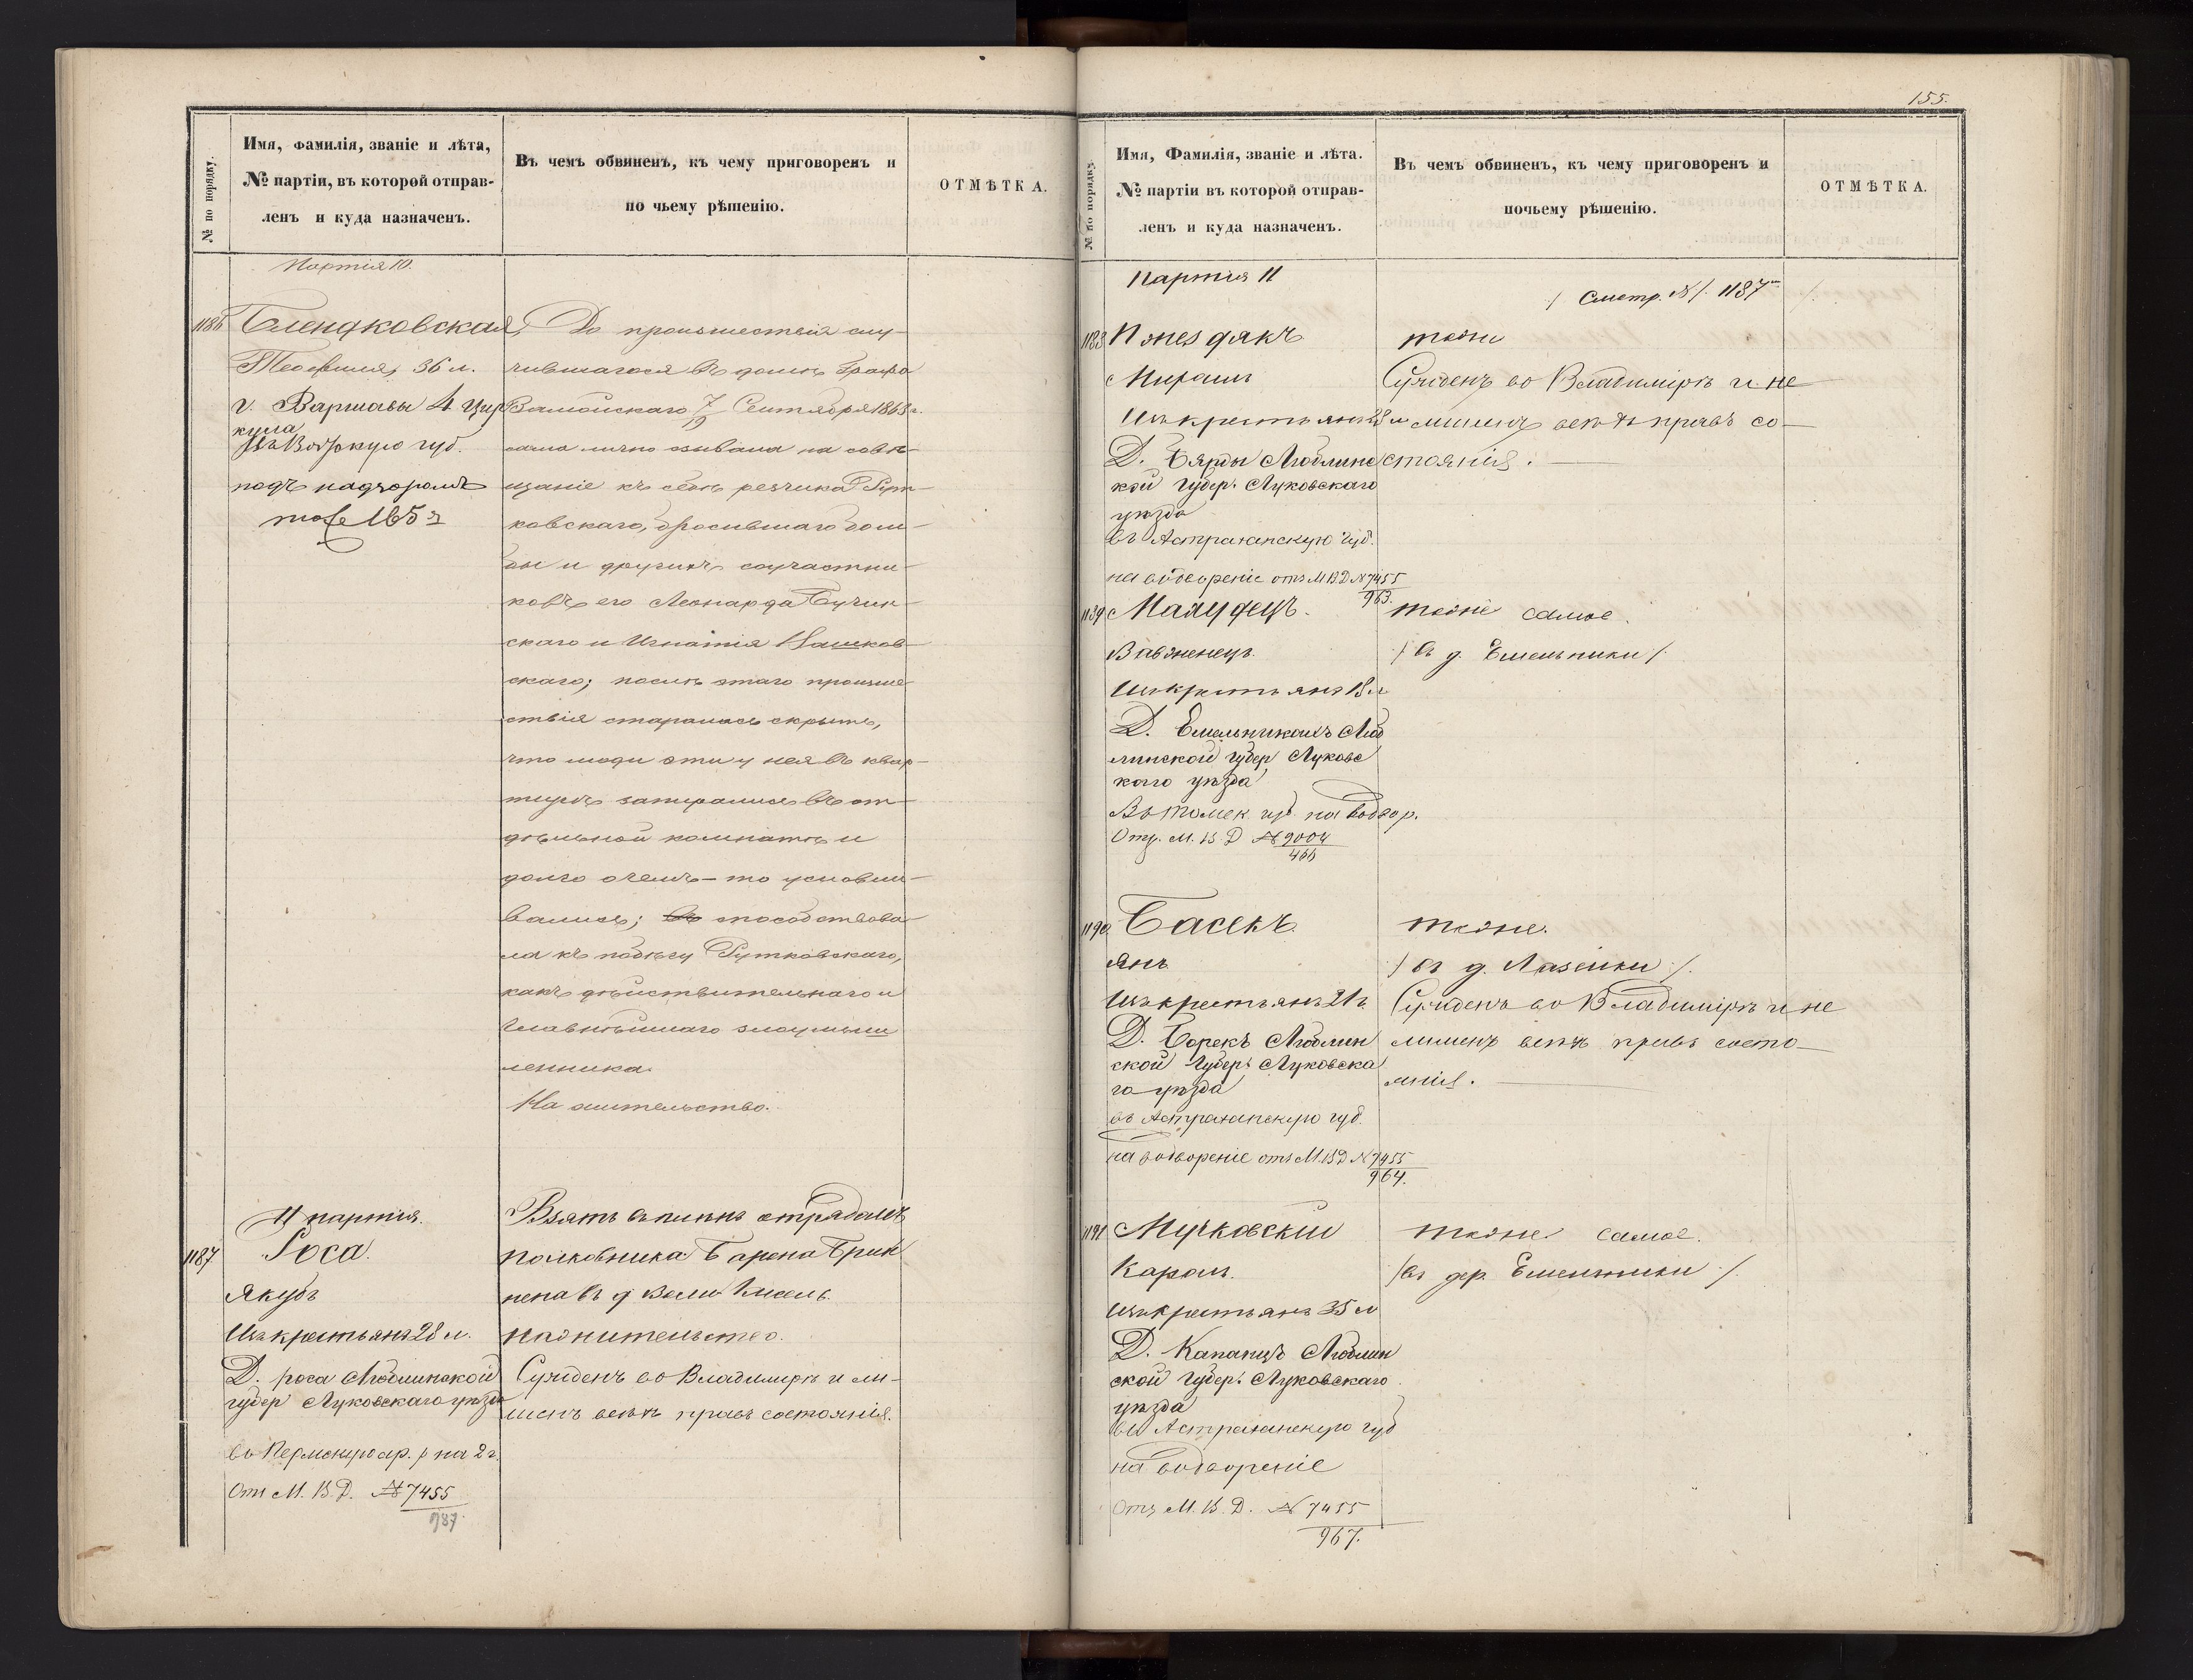 № по порядку.
Имя, фамилія, званіе и лѣта,
№ партіи, въ которой отправ-
ленъ и куда назначенъ.
Въ чемъ обвиненъ, къ чему приговоренъ и
по чьему рѣшенію.
ОТМѢТКА.
Партія 10.
1186
Блендковская,
Теофилія, 36 л.
г. Варшавы 4 цир
кула
подъ надзоромъ
До происшествія слу-
чившагося въ домѣ Графа
Замойскаго 7/19 Сентября 1863 г.
сама лично зывала на совѣ-
щаніе къ себѣ резчика Рут-
ковскаго, бросившаго бом-
бы и другихъ соучастни-
ковъ его Леонарда
скаго и Игнатія
скаго; послѣ этаго происше-
ствія старалась скрыть,
что люди эти у нея въ квар-
тирѣ запирались въ от-
дѣльной комнатѣ и
долго о чемъ-то условли-
вались; способствова-
ла къ побѣгу Рутковскаго,
какъ дѣйствительнаго и
главнѣйшаго злоумыш
ленника.
На жительство.
11 партія.
1187
Роса.
Якубъ
Изъ крестьянъ 28 л.
Д. роса Люблинской
губер Луковскаго уѣзда
въ Пермскую ар. р на 2 г.
Отн М. В. Д. № 7455
987.
Взятъ въ плѣнъ отрядомъ
полковника Барена
пена въ д
на жительство.
Сужденъ во Владимірѣ и ли-
шенъ всѣхъ правъ состоянія.
155.
№ по порядку.
Имя, Фамилія, званіе и лѣта.
№ партіи въ которой отправ-
ленъ и куда назначенъ.
Въ чемъ обвиненъ, къ чему приговоренъ и
почьему рѣшенію.
ОТМѢТКА.
Партія 11
/ Смотр. № 1187 /
1188
Михаилъ
Изъ крестьянъ
Д. Бярды Люблинс
кой губер. Луковскаго
уѣзда
въ Астраханскую губ.
на водвореніе отъ М В Д № 7455
963.
тоже
Сужденъ во Владимірѣ и не
лишенъ всѣхъ правъ со-
стоянія.
1189
Вавженецъ.
Изъ крестьянъ 18 л
Д. Емельникахъ Люб
линской губер Луковс
каго уѣзда
Въ Томск. губ на водвор.
Отн. М. В. Д № 9004
466
тоже самое.
/ въ д. Емельники /.
1190
Басекъ.
Янъ
Изъ крестьянъ 21 г.
Д. Борекъ Люблин
ской губер. Луковска
го уѣзда
въ Астраханскую губ.
на водвореніе отъ М. В Д № 7455
964.
тоже.
/ въ д. Лазенки /.
Сужденъ во Владимірѣ и не
лишенъ всѣхъ правъ состо-
янія.
1191
Мучковскій
Кароль.
Изъ крестьянъ 35 л
Д. Люблин
ской губер. Луковскаго
уѣзда
въ Астраханскую губ
на водвореніе
Отъ М. В. Д. № 7455
967.
тоже самое.
/ въ дер. Емельники /.